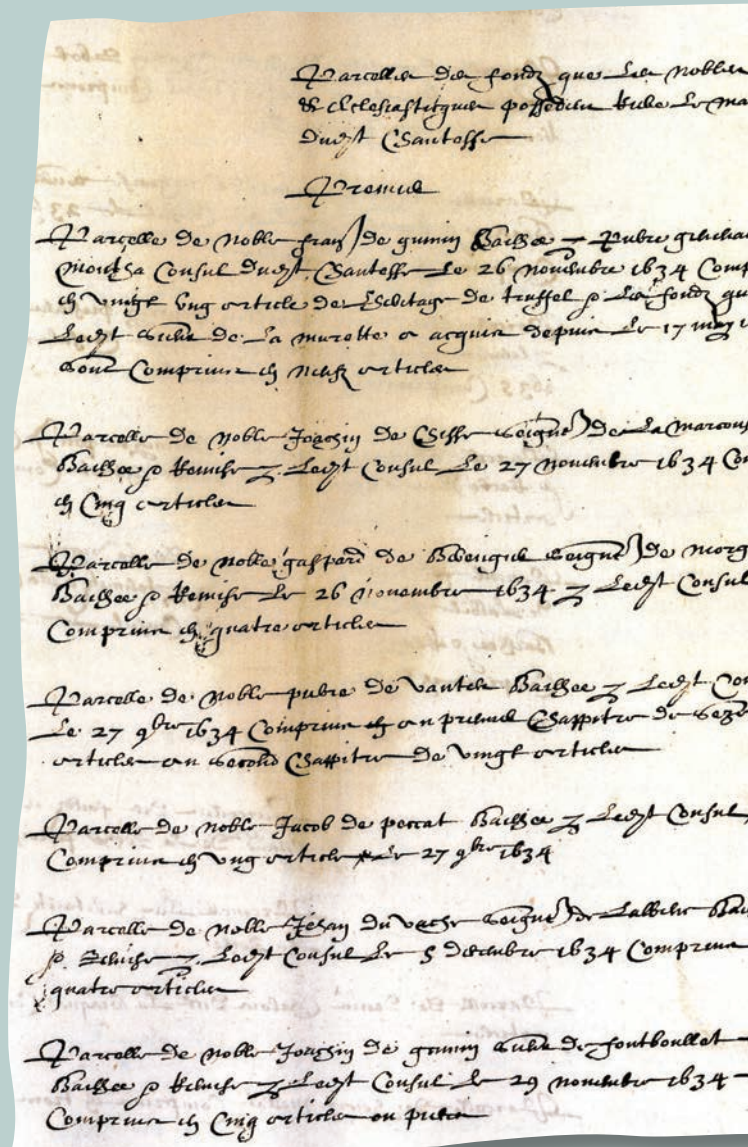 Parcelles des fondz que les nobles
& Ecclesiasticques possedent riere le ma
dudt Chantesse
Premier
Parcelle de noble de gumin Baillee
Consul dudt Chantesse le 26 novembre 1634 Comp
en vingt ung article de de truffel & les fondz qu
ledt de la murette a acquis depuis le 17 may
sont Comprins en neufz articles
Parcelle de noble Joachin de Chisse seignr de la marcous
Baillee & Remise ledt Consul le 27 novembre 1634 Com
en Cinq articles
Parcelle de noble gaspard de seignr de morg
Baillee & Remise le 26 novembre 1634 ledt Consul
Comprins en quatre articles
Parcelle de noble de Baillee ledt Con
le 27 9bre 1634 Comprins en un premier Chappitre de seze
articles un second Chappitre de vingt articles
Parcelle de noble Jacob de peccat Baillee ledt Consul
Comprins en ung article le 27 9bre 1634
Parcelle de noble Jehan du vache seignr de Bai
& Remise ledt Consul le 5 decembre 1634 Comprins
quatre articles
Parcelle de noble Joachin de gumin de fontbollet
Baillee & Remise ledt Consul le 29 novembre 1634
Comprins en Cinq articles ou